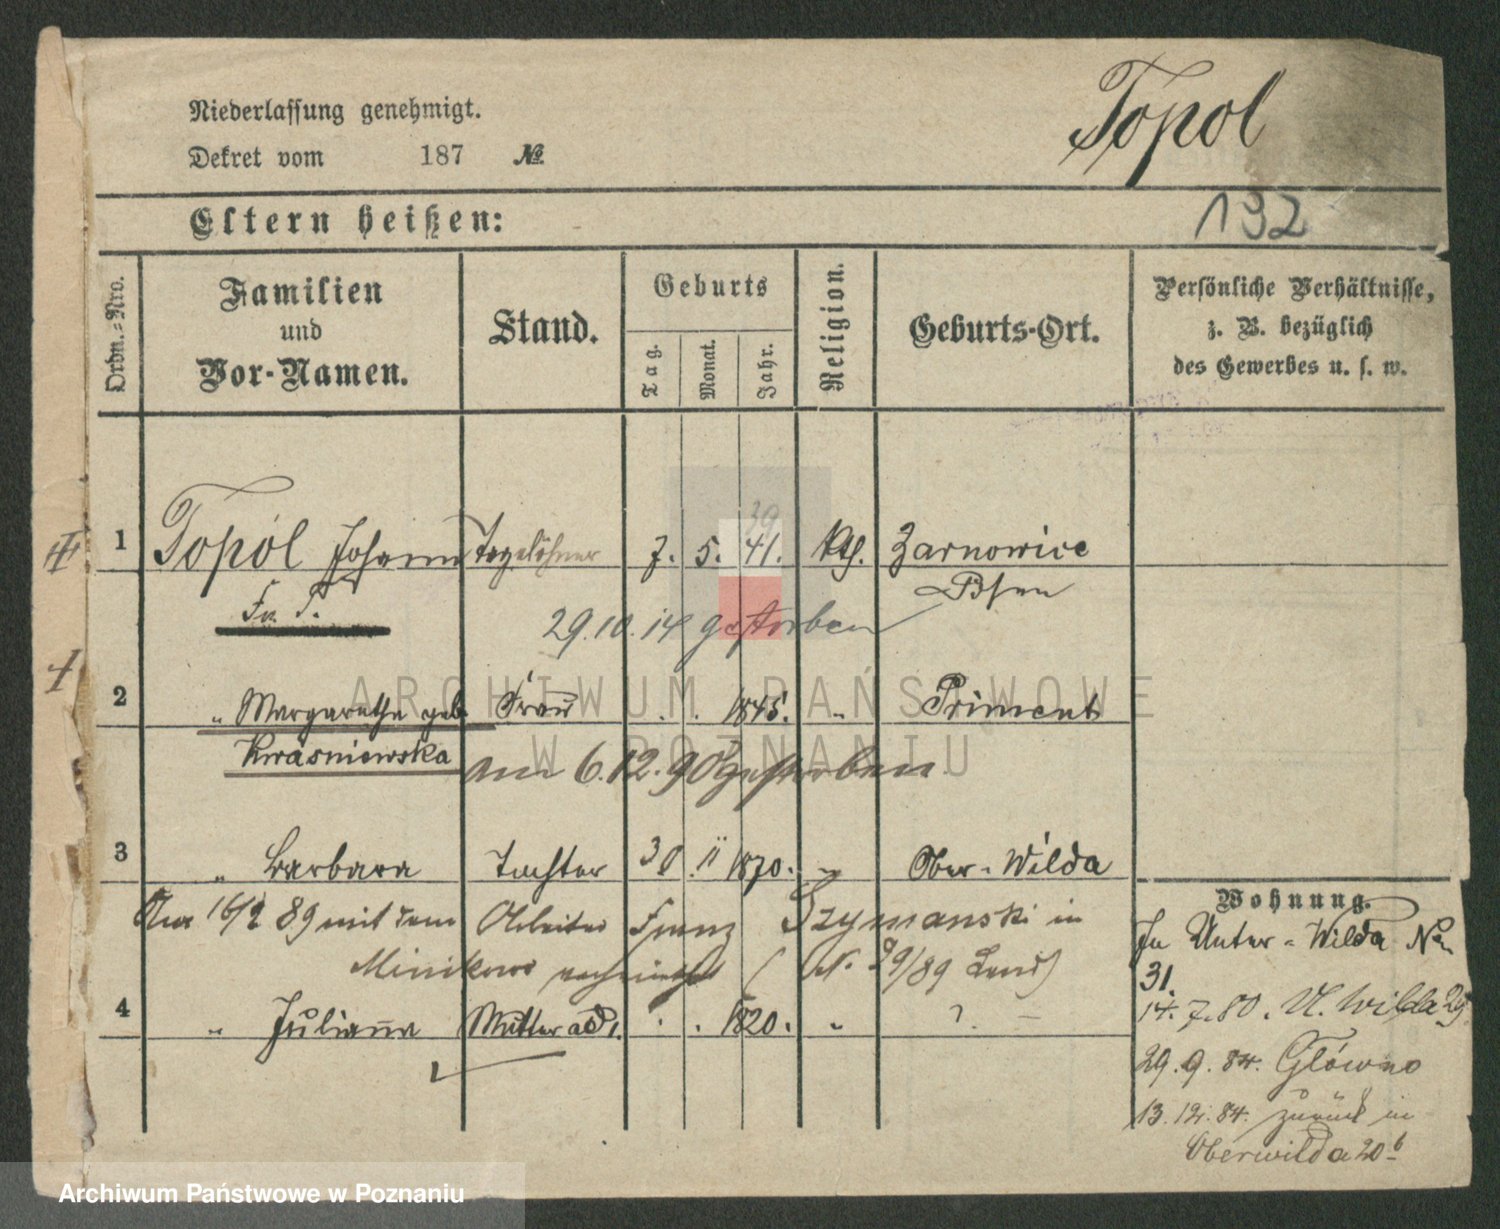 Topol
Niederlassung genehmigt.
Dekret vom 187 №
Eltern heißen:
132
Ordn.-Nro.
Familien
und
Vor-Namen.
Stand.
Geburts
Tag.
Monat.
Jahr.
Religion.
Geburts-Ort.
Persönliche Verhältnisse,
z. B. bezüglich
des Gewerbes u. s. w.
39
1 Topól Johann Tagelöhner 7. 5. 41. kth. Zarnowice
Posen
29.10.14 gestorben
2 " Margarethe geb. Frau . . 1845. " Priment
Kwasniewska am 6.12.90 gestorben
3 " Barbara Tochter 30. 11 1870. " Ober-Wilda
Am 16/2 89 mit dem Arbeiter Franz Szymanski in
Minikowo verheirathet (N. 29/89 Land)
4 " Juliana Mutter ad 1. . . 1820. " ? —
Wohnung.
In Unter-Wilda No
31.
14.7.80. U. Wilda 29
29.9.84. Główno
13.12.84. zurück in
Oberwilda 20b
ARCHIWUM PAŃSTWOWE
W POZNANIU
Archiwum Państwowe w Poznaniu